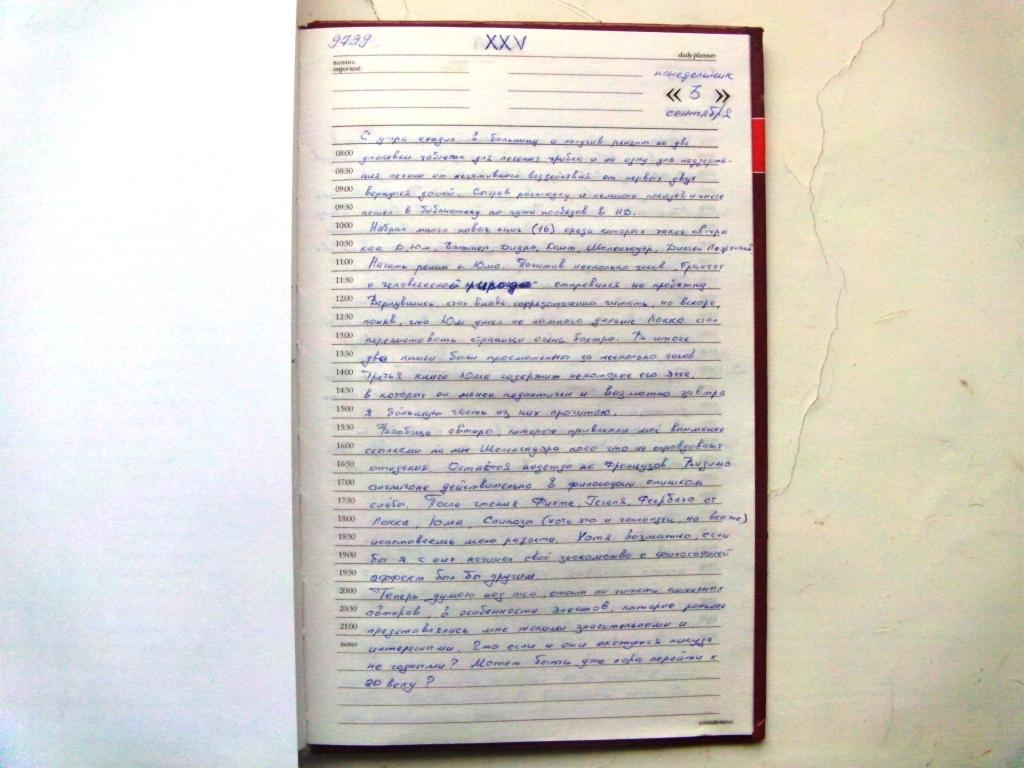 9799 XXV
daily planner
важно:
important:
понедельник
« 3 »
сентября
С утра сходил в больницу и получив рецепт на две
08:00 упаковки таблеток для лечения грибка и на одну для поддержа-
08:30 ния печени от негативного воздействия от первых двух
09:00 вернулся домой. Сыграв раскладку и немного
09:30 пошел в библиотеку по пути пообедав в НД.
10:00 Набрал много новых книг (16) среди которых такие автора
10:30 как Д. Юм, Дидро, Кант, Шопенгауэр, Диоген
11:00 Начать решил с Юма. Почитав несколько часов "Трактат
11:30 о человеческой природе" отправился на пробежку
12:00 Вернувшись стал вновь читать, но вскоре,
12:30 поняв, что Юм ушел не намного дальше Локка стал
13:00 перелистовать страницы очень быстро. В итоге
13:30 две книги были просмотены за несколько часов
14:00 Третья книга Юма содержит некоторое его эссе,
14:30 в которых он менее педантичен и возможно завтра
15:00 я большую часть из них прочитаю.
15:30 Вообще авторы, которое привлекли моё внимание
16:00 ссылками на них Шопенгауэра пока что не оправдовают
16:30 ожидания. Остаётся надежда на Французов. Видимо
17:00 англичане действительно в философии слишком
17:30 слабы. После чтения Фихте, Гегеля, Феербаха от
18:00 Локка, Юма, Спинозы (хоть это и голландец, но все же)
18:30 испытовешь мало радости. Хотя возможно, если
19:00 бы я с них начинал своё знакомство с философией
19:30 эффект был бы другим.
20:00 Теперь думаю над тем, стоит ли читать античных
20:30 авторов, в особенности элеатов, которое раньше
21:00 представлялись мне такими значительными и
notes интересными. Что если и они окажутся никуда
не годными? Может быть уже пора перейти к
20 веку?